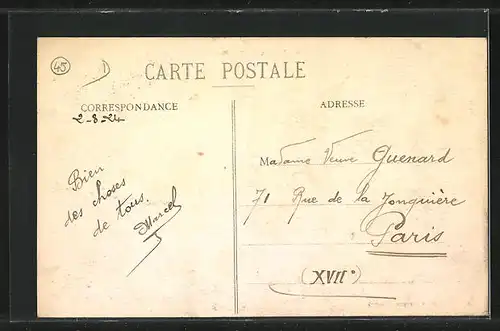 45
CARTE POSTALE
CORRESPONDANCE
ADRESSE
2-8-24
Bien
des choses
de tous.
Marcel
Madame Veuve Guenard
71 Rue de la Jonquière
Paris
(XVII°)